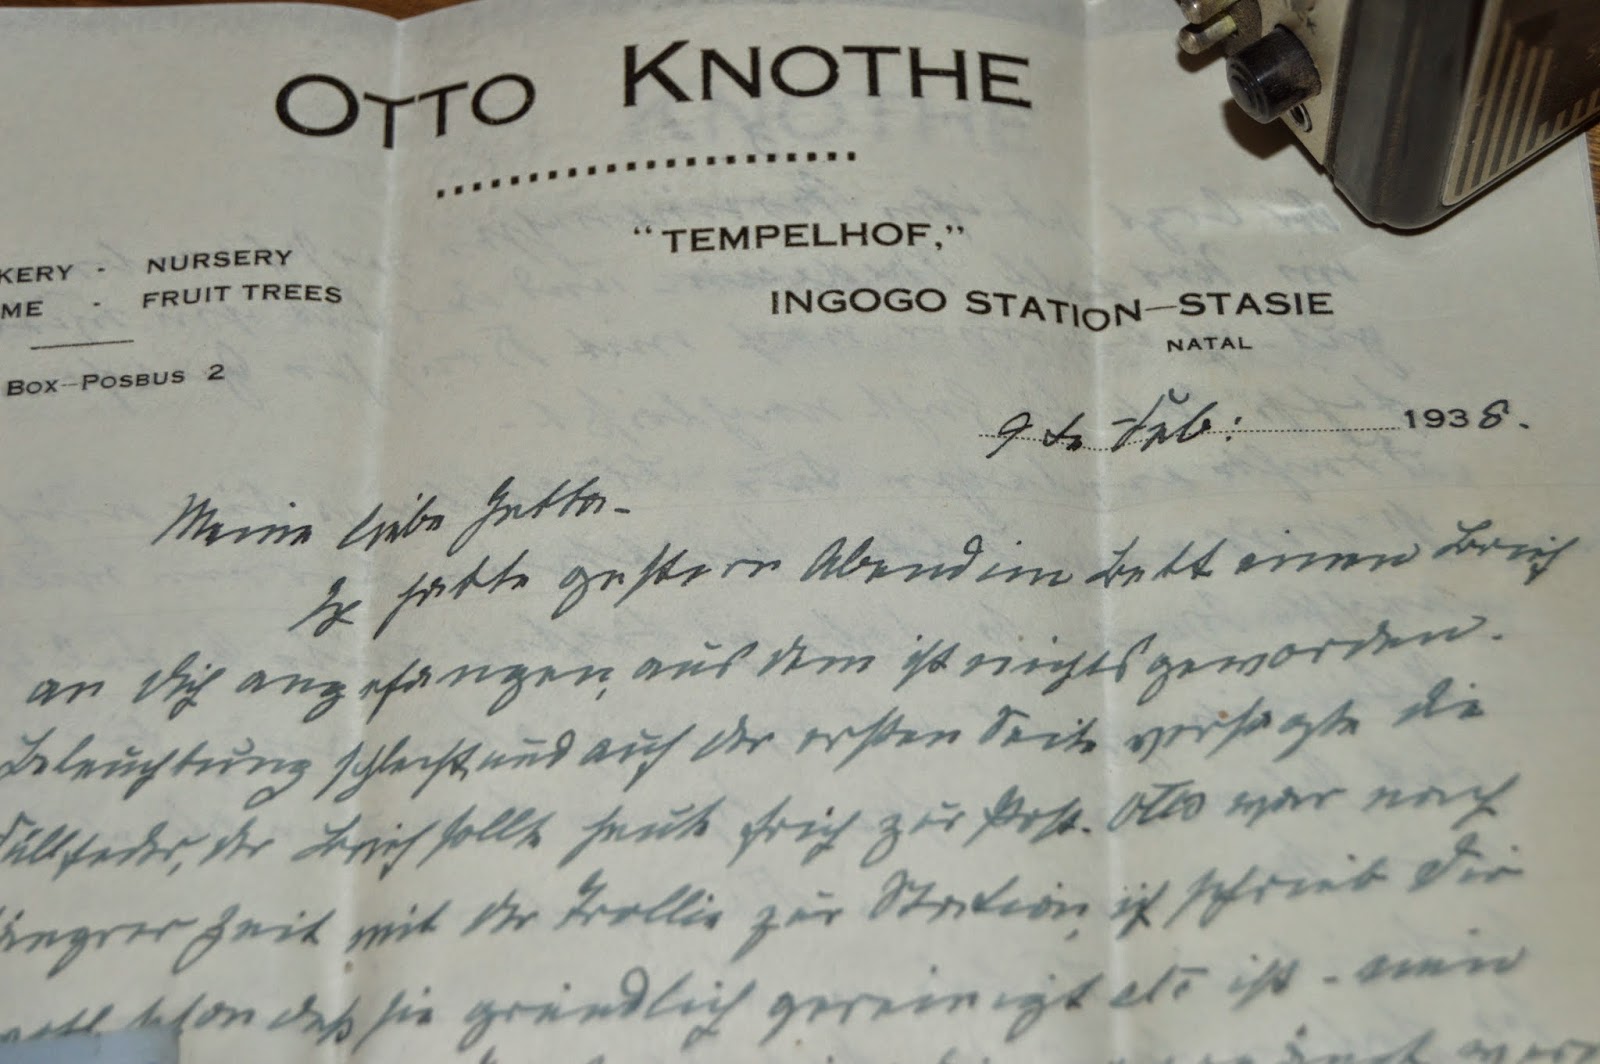 OTTO KNOTHE
"TEMPELHOF,"
KERY - NURSERY
ME - FRUIT TREES
INGOGO STATION—STASIE
NATAL
BOX—POSBUS 2
9 Feb: 1938.
Meine liebe
Ich hatte gestern Abend im Bett einen Brief
an Dich angefangen, aus dem ist nichts geworden.
Beleuchtung schlecht und auch der ersten Seite versagte die
Füllfeder, der Brief sollte heute früh zur Post. Otto war nach
längrer Zeit mit der Trollie zur Station, ich schrieb Dir
schon daß sie gründlich gereinigt etc ist - mein